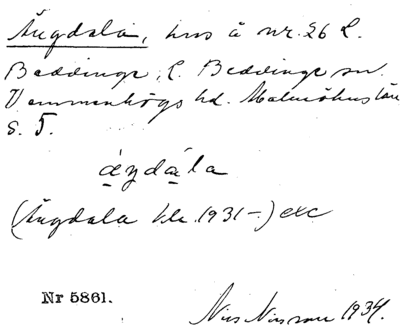 Ängdala, hus å nr. 26 L.
Beddinge, L. Beddinge sn.
Vemmenhögs hd. Malmöhus län
s. 5.
äŋdàla
(Ängdala kla. 1931-) exc
Nr 5861.
Nils Nilsson 1934.